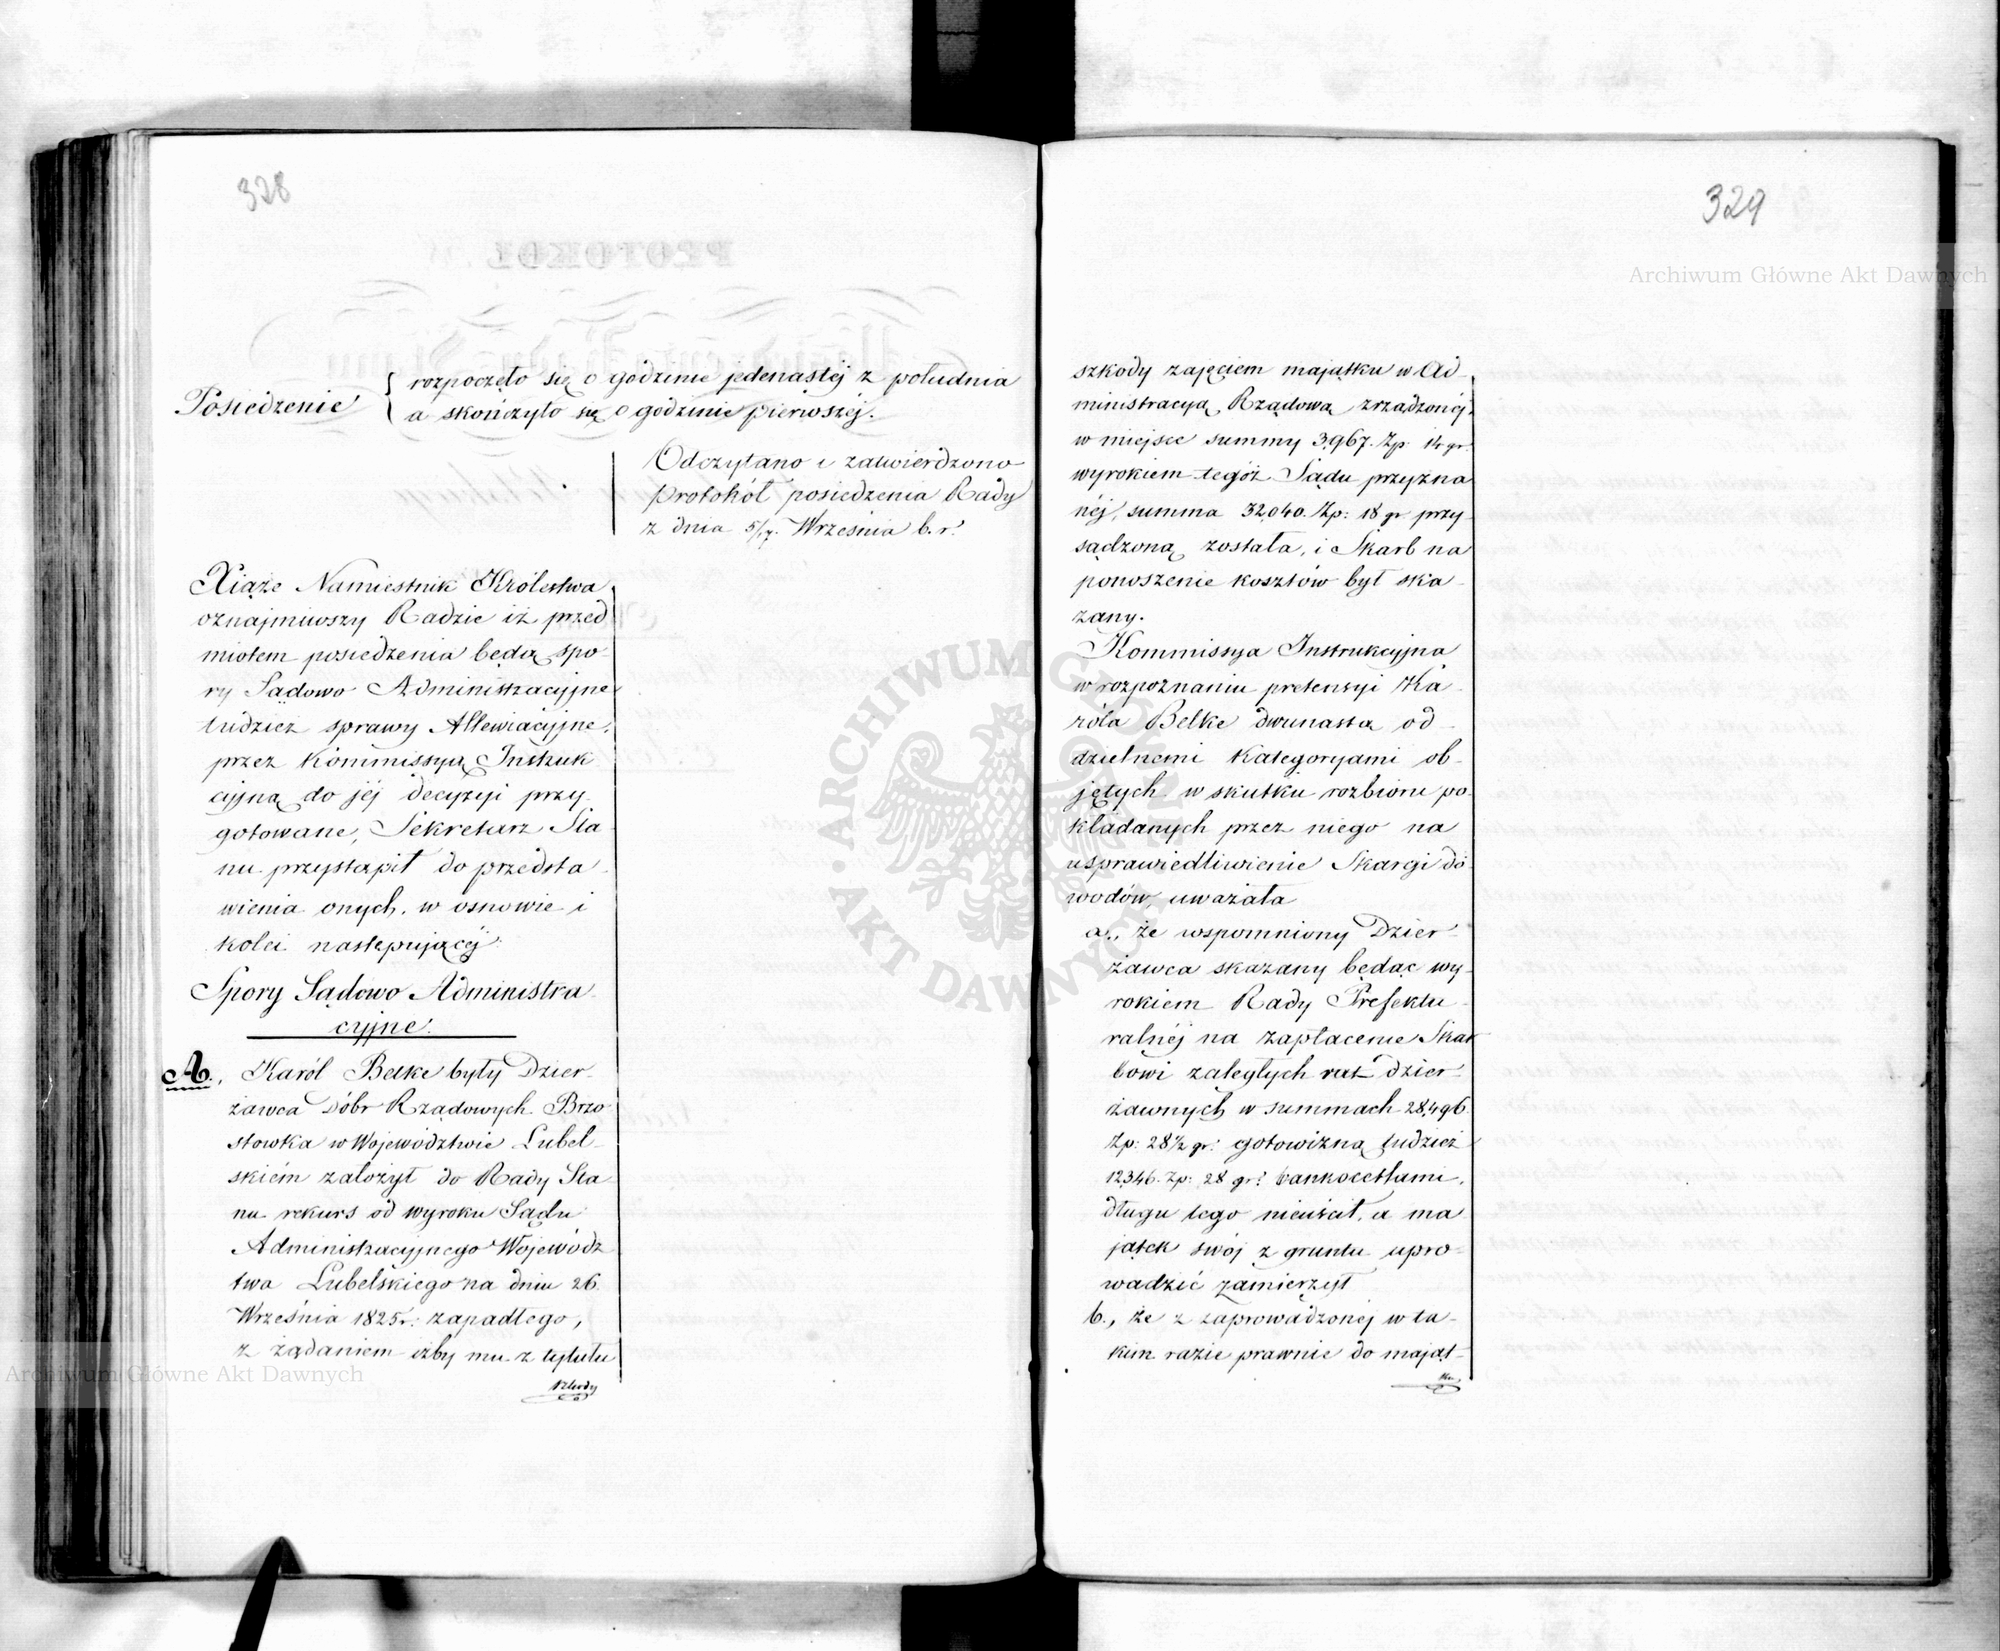 328
Posiedzenie
rozpoczęło się o godzinie jedenastéj z południa
a skończyło się o godzinie pierwszéj.
Odczytano i zatwierdzono
protokół posiedzenia Rady
z dnia 5/17. Września b. r.
Xiąże Namiestnik Królestwa
oznajmiwszy Radzie iż przed
miotem posiedzenia będą spo-
ry Sądowo Administracyjne
tudzież sprawy Allewiacyjne,
przez Kommissyą Instruk
cyjną do jéj decyzyi przy-
gotowane, Sekretarz Sta
nu przystąpił do przedsta
wienia onych, w osnowie i
kolei następującéj:
Spory Sądowo Administra-
cyjne.
A., Karól Belke były Dzier-
żawca dóbr Rządowych Brzo
stowka w Województwie Lubel-
skiém założył do Rady Sta
nu rekurs od wyroku Sądu
Administracyjnego Wojewódz
twa Lubelskiego na dniu 26
Września 1825r. zapadłego,
z żądaniem iżby mu z tytułu
szkody
329
szkody zajęciem majątku w Ad-
ministracyą Rządową zrządzonéj,
w miejsce summy 3,967. Zp: 14 gr.
wyrokiem tegóż Sądu przyzna
néj, summa 32,040. Zp: 18 gr. przy-
sądzoną została, i Skarb na
ponoszenie kosztów był ska-
zany.
Kommissya Instrukcyjna
w rozpoznaniu pretensyi Ka-
róla Belke dwunastą od-
dzielnemi Kategoryami ob-
jętych w skutku rozbioru po-
kładanych przez niego na
usprawiedliwienie Skargi do-
wodów, uważała
a., że wspomniony Dzier-
żawca skazany będąc wy-
rokiem Rady Prefektu-
ralnéj na zapłacenie Skar
bowi zaległych rat dzier-
żawnych w summach 28,496
Zp: 28 1/2 gr: gotowizną tudzież
12,346. Zp: 28 gr: bankocetlami,
długu tego nieuiścił, a ma
jątek swój z gruntu upro-
wadzić zamierzył
b., że z zaprowadzonéj w ta-
kim razie prawnie do mająt-
ku,
ARCHIWUM GŁÓWNE AKT DAWNYCH · AKT DAWNYCH
Archiwum Główne Akt Dawnych
Archiwum Główne Akt Dawnych